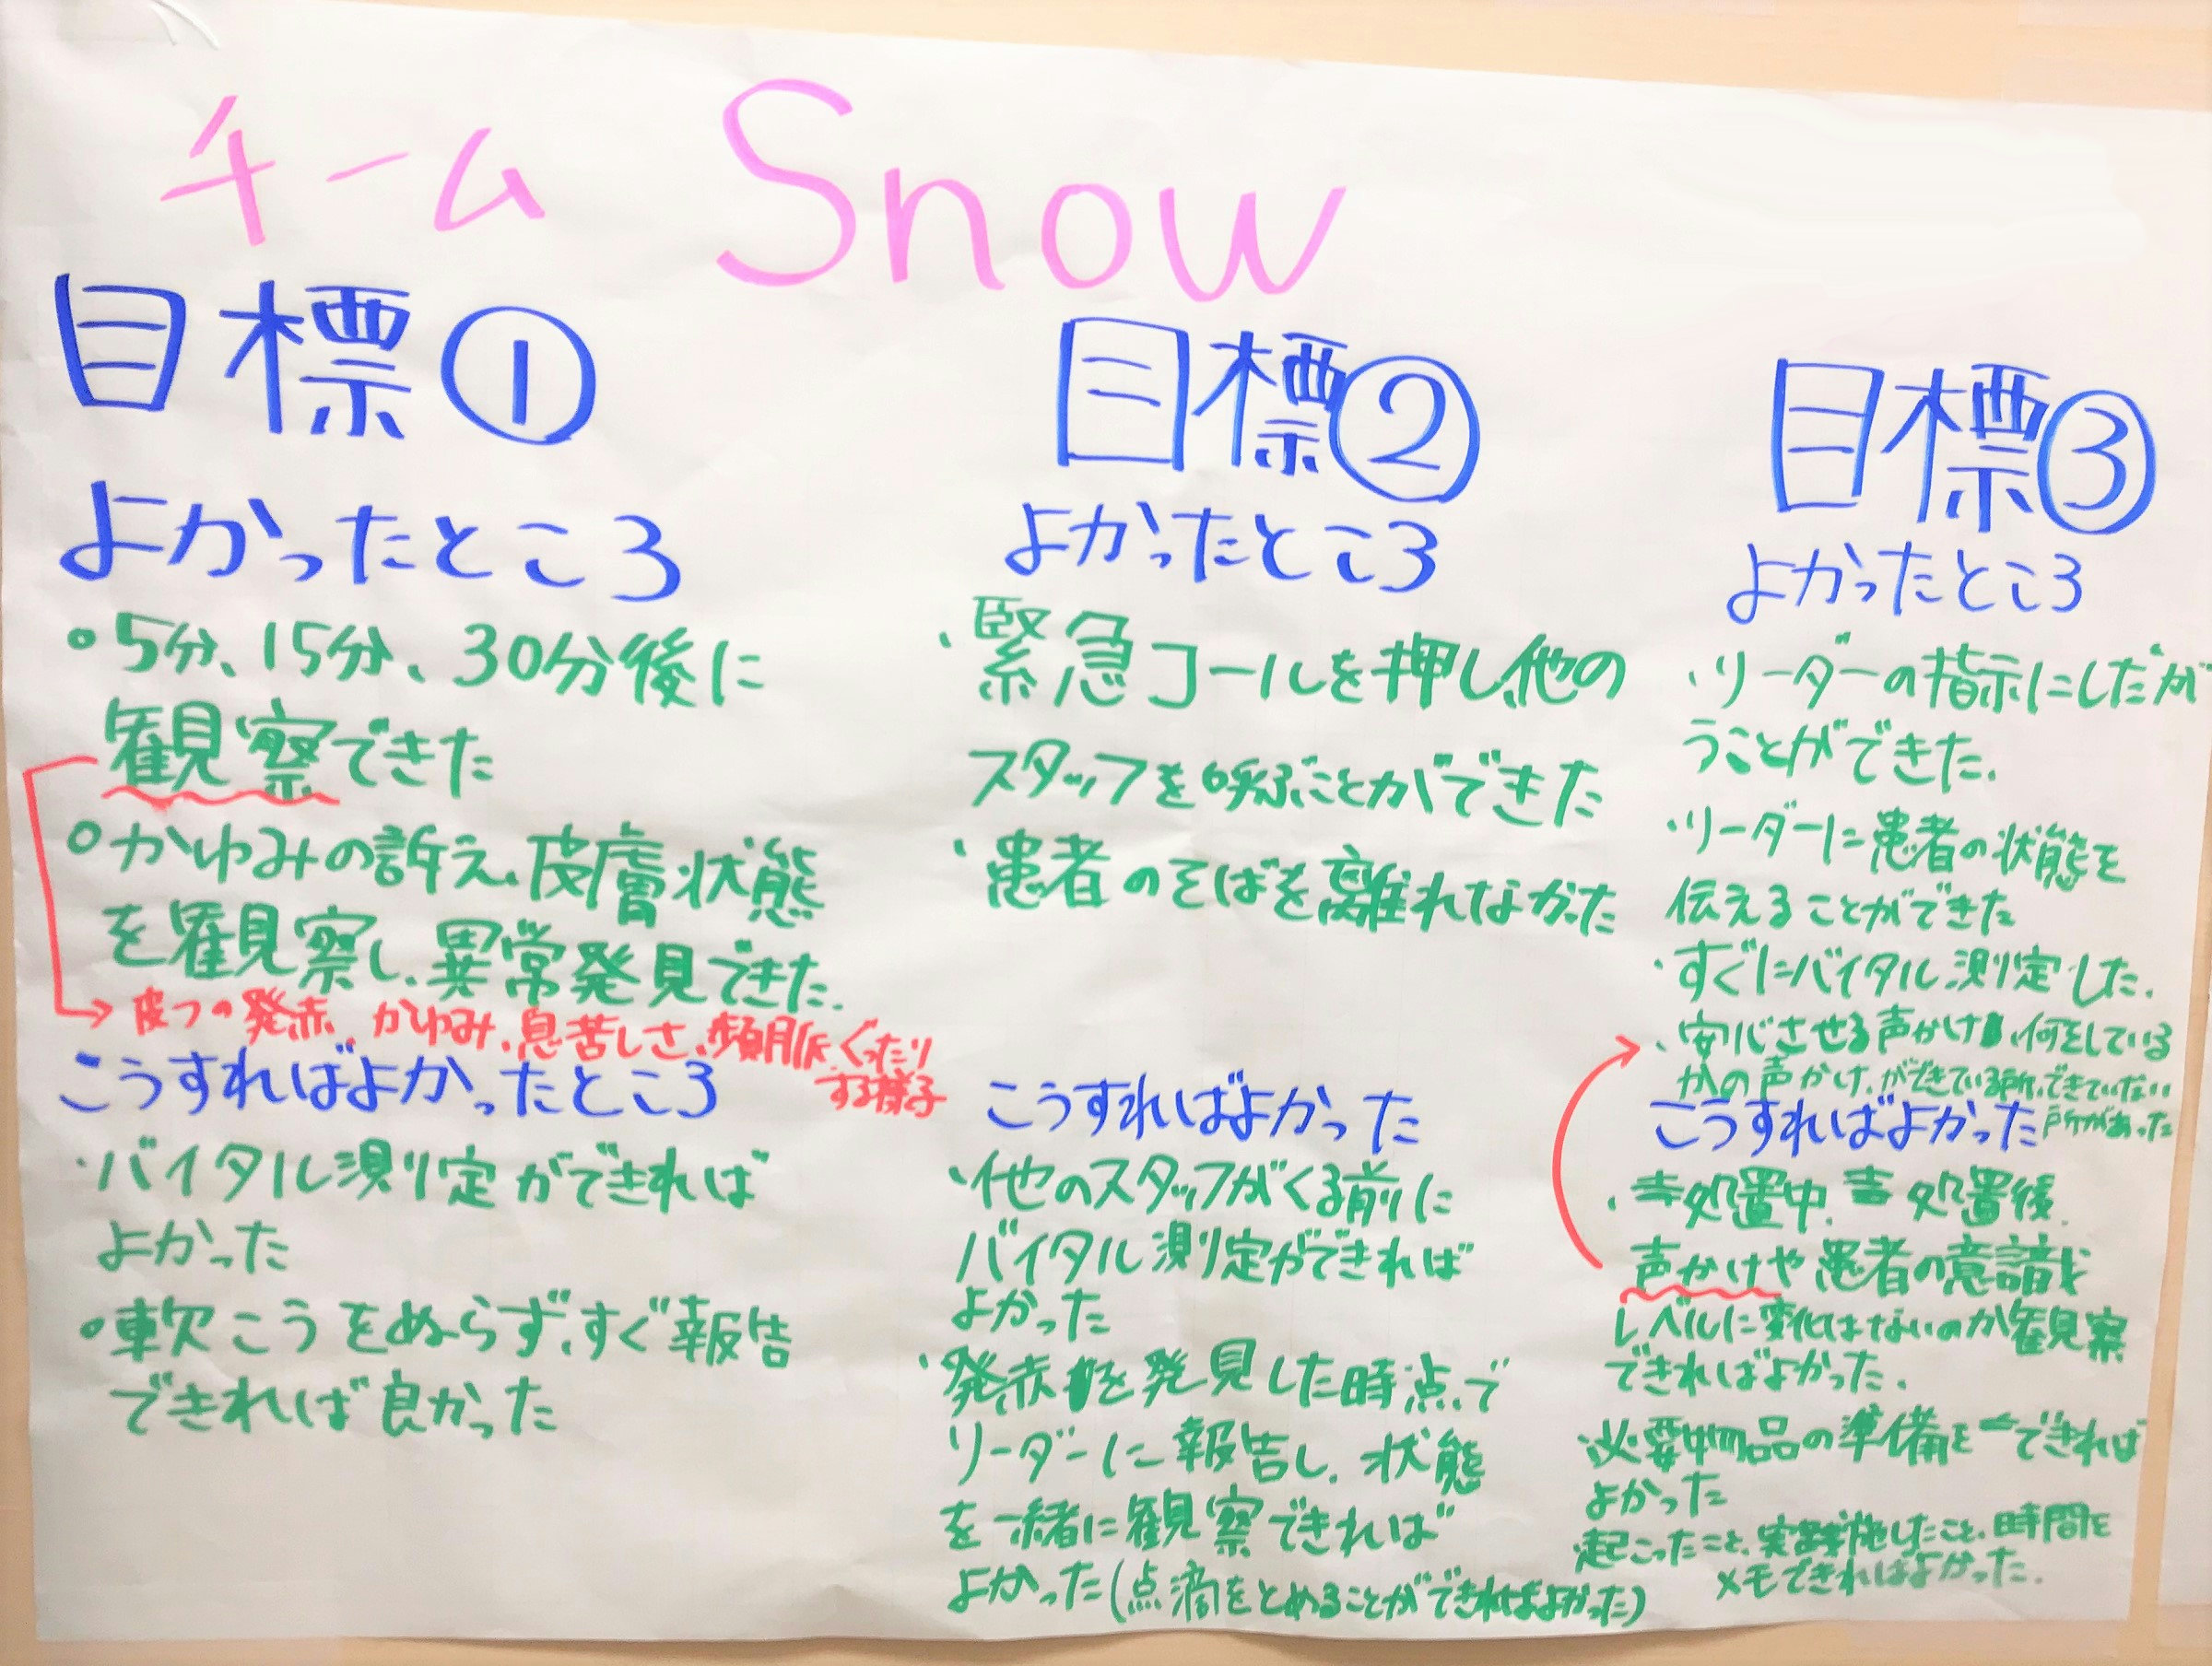 チーム Snow
目標①
よかったところ
○5分、15分、30分後に
観察できた
○かゆみの訴え、皮膚状態
を観察し、異常発見できた.
→皮フの発赤、かゆみ、息苦しさ、頻脈、ぐったり
する様子
こうすればよかったところ
・バイタル測定ができれば
よかった
○軟こうをぬらず、すぐ報告
できれば良かった
目標②
よかったところ
・緊急コールを押し、他の
スタッフを呼ぶことができた
・患者のそばを離れなかった
こうすればよかった
・他のスタッフがくる前に
バイタル測定ができれば
よかった
・発赤を発見した時点で
リーダーに報告し、状態
を一緒に観察できれば
よかった(点滴をとめることができればよかった)
目標③
よかったところ
・リーダーの指示にしたが
うことができた.
・リーダーに患者の状態を
伝えることができた
・すぐにバイタル測定した.
・安心させる声かけ、何をしている
かの声かけ、ができている所、できていない
所があった
こうすればよかった
・処置中、処置後、
声かけや患者の意識
レベルに変化はないのか観察
できればよかった.
・必要物品の準備をできれば
よかった
・起こったこと、実施したこと、時間を
メモできればよかった.